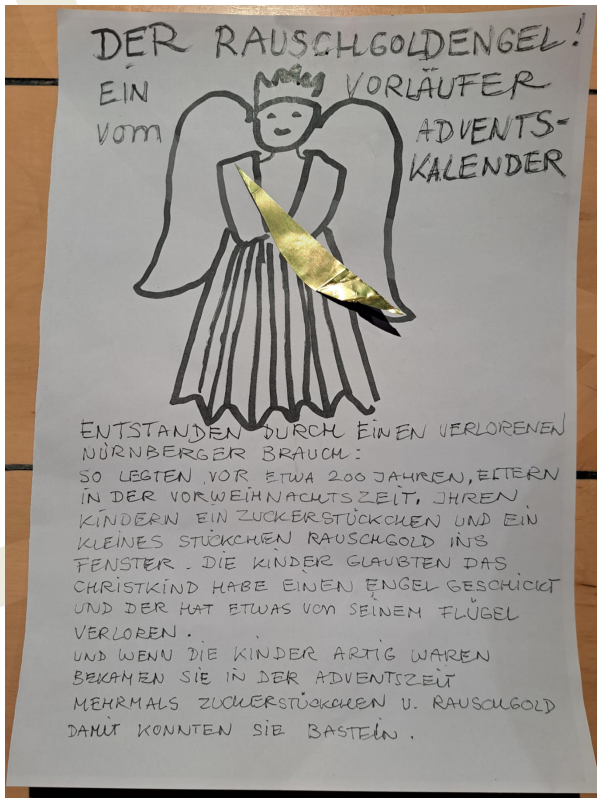 DER RAUSCHGOLDENGEL!
EIN VORLÄUFER
vom ADVENTS-
KALENDER
ENTSTANDEN DURCH EINEN VERLORENEN
NÜRNBERGER BRAUCH:
SO LEGTEN, VOR ETWA 200 JAHREN, ELTERN
IN DER VORWEIHNACHTSZEIT, IHREN
KINDERN EIN ZUCKERSTÜCKCHEN UND EIN
KLEINES STÜCKCHEN RAUSCHGOLD INS
FENSTER. DIE KINDER GLAUBTEN DAS
CHRISTKIND HABE EINEN ENGEL GESCHICKT
UND DER HAT ETWAS VON SEINEM FLÜGEL
VERLOREN.
UND WENN DIE KINDER ARTIG WAREN
BEKAMEN SIE IN DER ADVENTSZEIT
MEHRMALS ZUCKERSTÜCKCHEN U. RAUSCHGOLD
DAMIT KONNTEN SIE BASTELN.